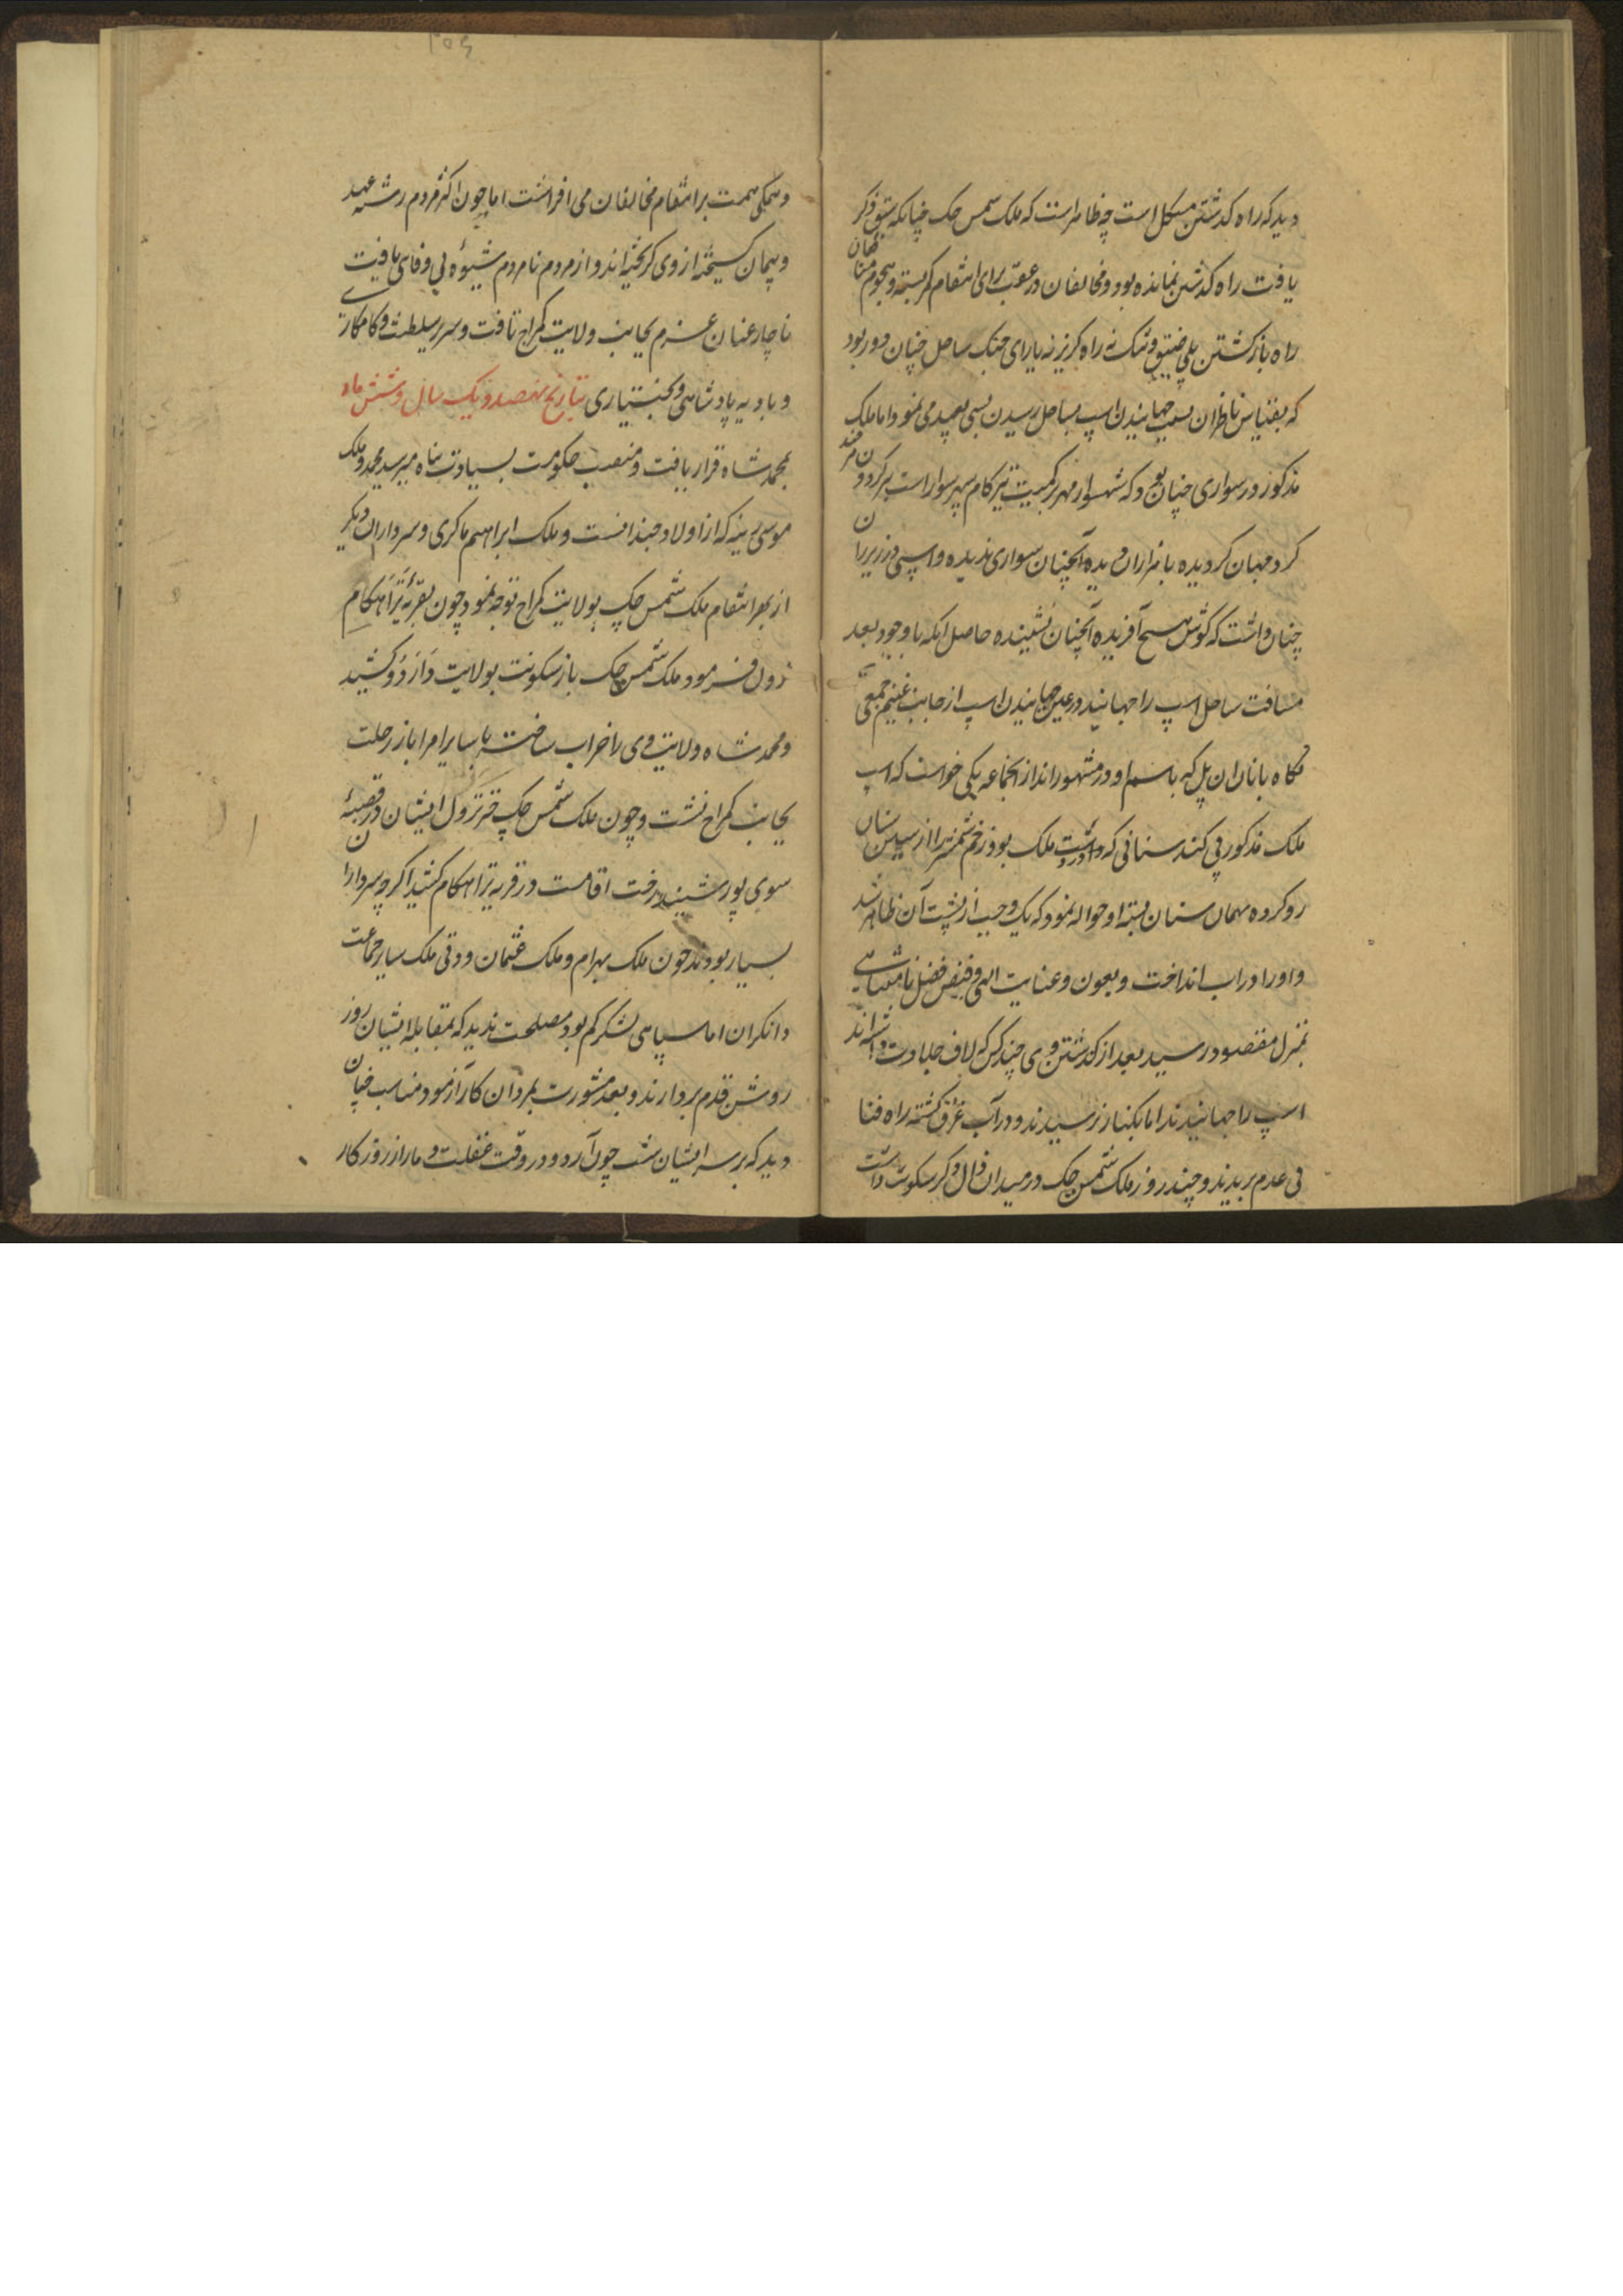 دید که راه کذشتن مشکل است چه ظاهر است که ملک شمس چک چنانکه سبق ذکر
یافت راه کذشتن نمانده بود و مخالفان در عقب برای انتقام کمر بسته و هجوم
راه بازکشتن پلی ضیق و تنک نه راه کریز نه یارای جنک ساحل چنان دور بود
که بقیاس ناظران بسبب جهانیدن اسپ بساحل رسیدن بسی بعید می نمود اما ملک
مذکور در سواری چنان بود که شهسوار مهر بر کمیت تیز کام سپهر سوار است
کرد جهان کردیده با هزاران دیده آنچنان سواری ندیده و اسپی در زیر ران
چنان داشت که کوش هیچ آفریده آنچنان نشینده حاصل آنکه با وجود بعد
مسافت ساحل اسپ را جهانید در عین جهانیدن اسپ از جانب غنیم جمعی
نکاهبانان آن پل که باسم او در مشهوراند از آنجماعه یکی خواست که اسپ
ملک مذکور پی کند سنانی که در دست ملک بود زخم شمشیر را از رسیدن
رد کرده همان سنان بسینه او حواله نمود که یک وجب از پشت آن ظاهر شد
و او را در آب انداخت و بعون و عنایت الهی و فیض فضل نامتناهی
بمنزل مقصود رسید بعد از کذشتن وی چند کس که لاف جلادت داشته اند
اسپ را جهانیدند اما بکنار نرسیدند و در آب غرق کشته راه فنا
فی عدم بریدند و چند روز ملک شمس چک در میدان سکونت داشت
و همکی همت بر انتقام مخالفان می افراشت اما چون اکثر مردم رشته عهد
و پیمان کسیخته از وی کریخته اند و از مردم نامردم شیوه بی وفائی یافت
ناچار عنان عزم بجانب ولایت کمراج تافت و سریر سلطنت و کامکاری
و بادیه پادشاهی و بختیاری بتاریخ نهصد و یک سال و شش ماه
بمحمد شاه قرار یافت و منصب حکومت بسیادت پناه میر سید محمد و ملک
موسی رینه که از اولاد چند است و ملک ابراهیم ماکری و سرداران دیکر
از بهر انتقام ملک شمس چک بولایت کمراج توجه نمود چون بقریه تراهکام
نزول فرمود ملک شمس چک باز سکونت بولایت دارَدو کشید
و محمد شاه ولایت وی را خراب ساخته با سایر امرا باز رحلت
بجانب کمراج نشت و چون ملک شمس چک خبر نزول ایشان در قصبه
سوی پور شنیدند رخت اقامت در قریه تراهکام کشید اکرچه سرداران
بسیار بودند چون ملک بهرام و ملک عثمان و دتی ملک سایر جماعت
دانکران اما سپاهی لشکر کم بود مصلحت ندید که بمقابله ایشان روز
روشن قدم بردارند و بعد مشورت بمردان کار آزمود مناسب چنان
دید که بر سر ایشان شب چون آرد و در وقت غفلت دمار از روزکار